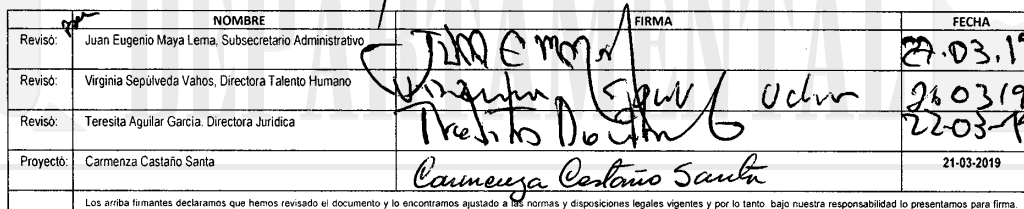 NOMBRE FIRMA FECHA
Revisó: Juan Eugenio Maya Lema, Subsecretario Administrativo 27.03.19
Revisó: Virginia Sepúlveda Vahos, Directora Talento Humano 26 03 19
Revisó: Teresita Aguilar García. Directora Jurídica 22-03-19
Proyectó: Carmenza Castaño Santa Carmenza Castaño Santa 21-03-2019
Los arriba firmantes declaramos que hemos revisado el documento y lo encontramos ajustado a las normas y disposiciones legales vigentes y por lo tanto, bajo nuestra responsabilidad lo presentamos para firma.